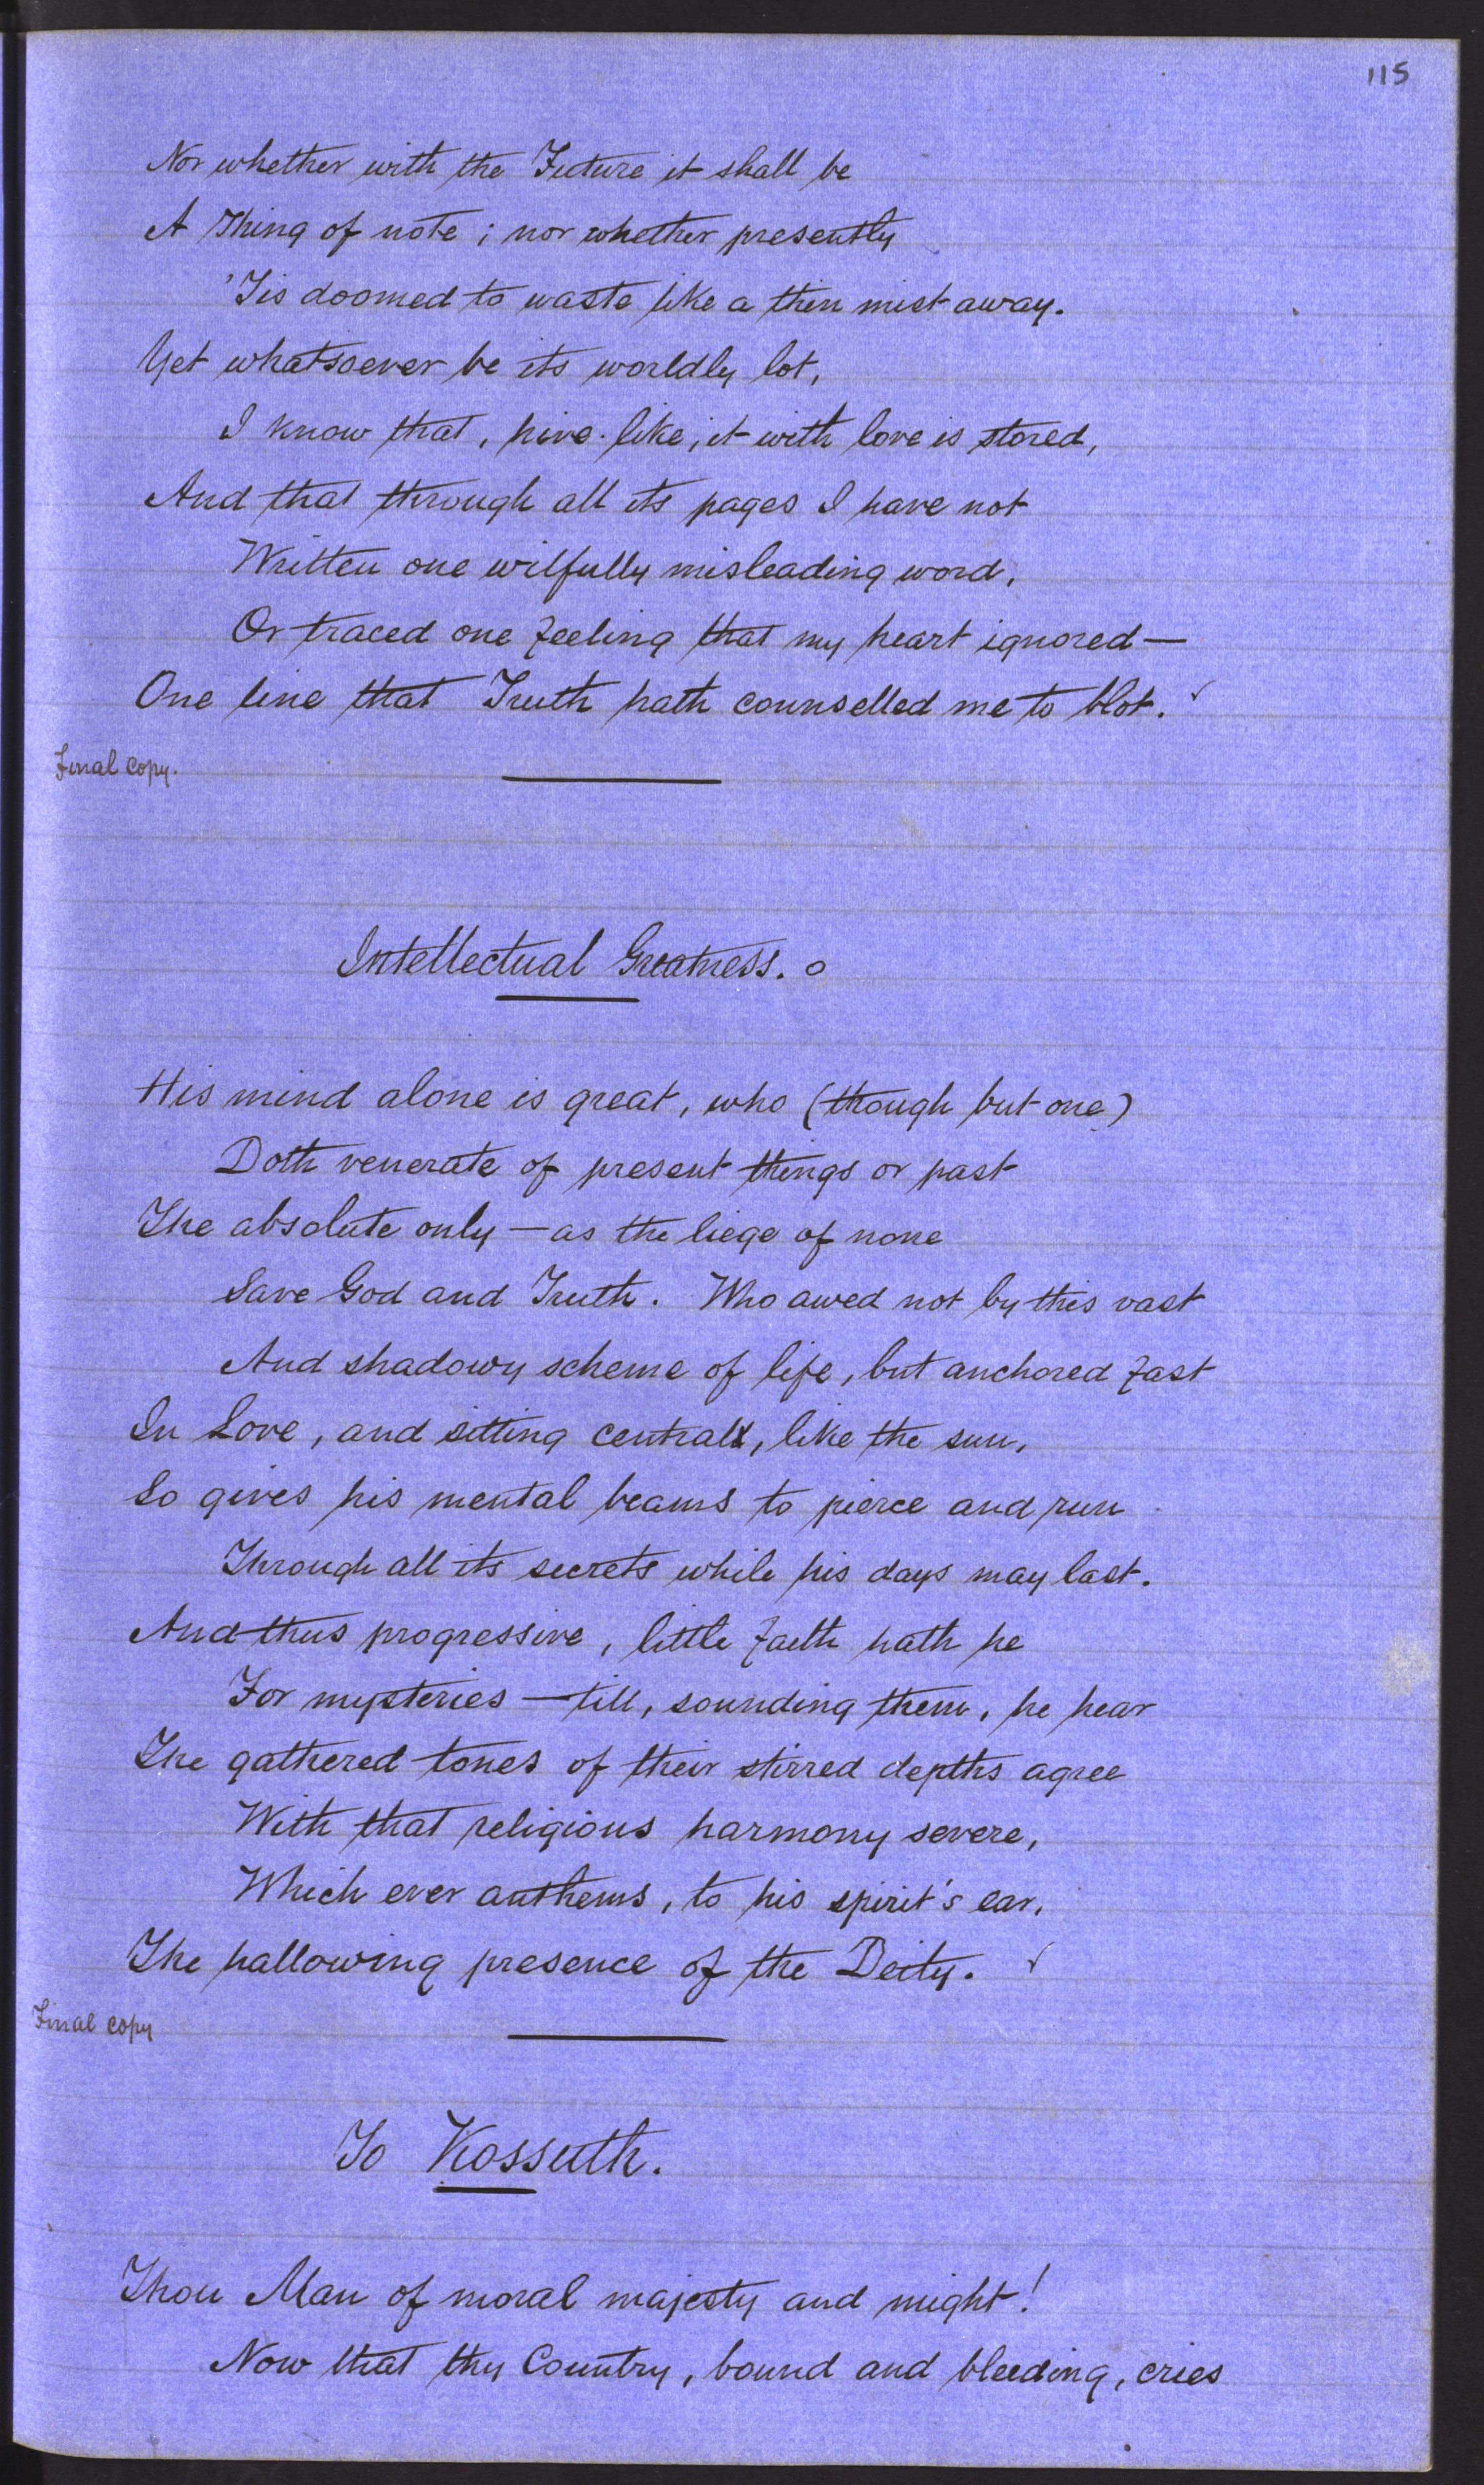 115
Nor whether with the Future it shall be
A Thing of note; nor whether presently
'Tis doomed to waste like a thin mist away.
Yet whatsoever be its worldly lot,
I know that, hive-like, it with love is stored,
And that through all its pages I have not
Written one wilfully misleading word,
Or traced one feeling that my heart ignored—
One line that Truth hath counselled me to blot. ✓
Final copy.
Intellectual Greatness. o
His mind alone is great, who (though but one)
Doth venerate of present things or past
The absolute only—as the liege of none
Save God and Truth. Who awed not by this vast
And shadowy scheme of life, but anchored fast
In Love, and sitting central, like the sun,
So gives his mental beams to pierce and run
Through all its secrets while his days may last.
And thus progressive, little faith hath he
For mysteries—till, sounding them, he hear
The gathered tones of their stirred depths agree
With that religious harmony severe,
Which ever anthems, to his spirit's ear,
The hallowing presence of the Deity. ✓
Final copy
To Kossuth.
Thou Man of moral majesty and might!
Now that thy Country, bound and bleeding, cries